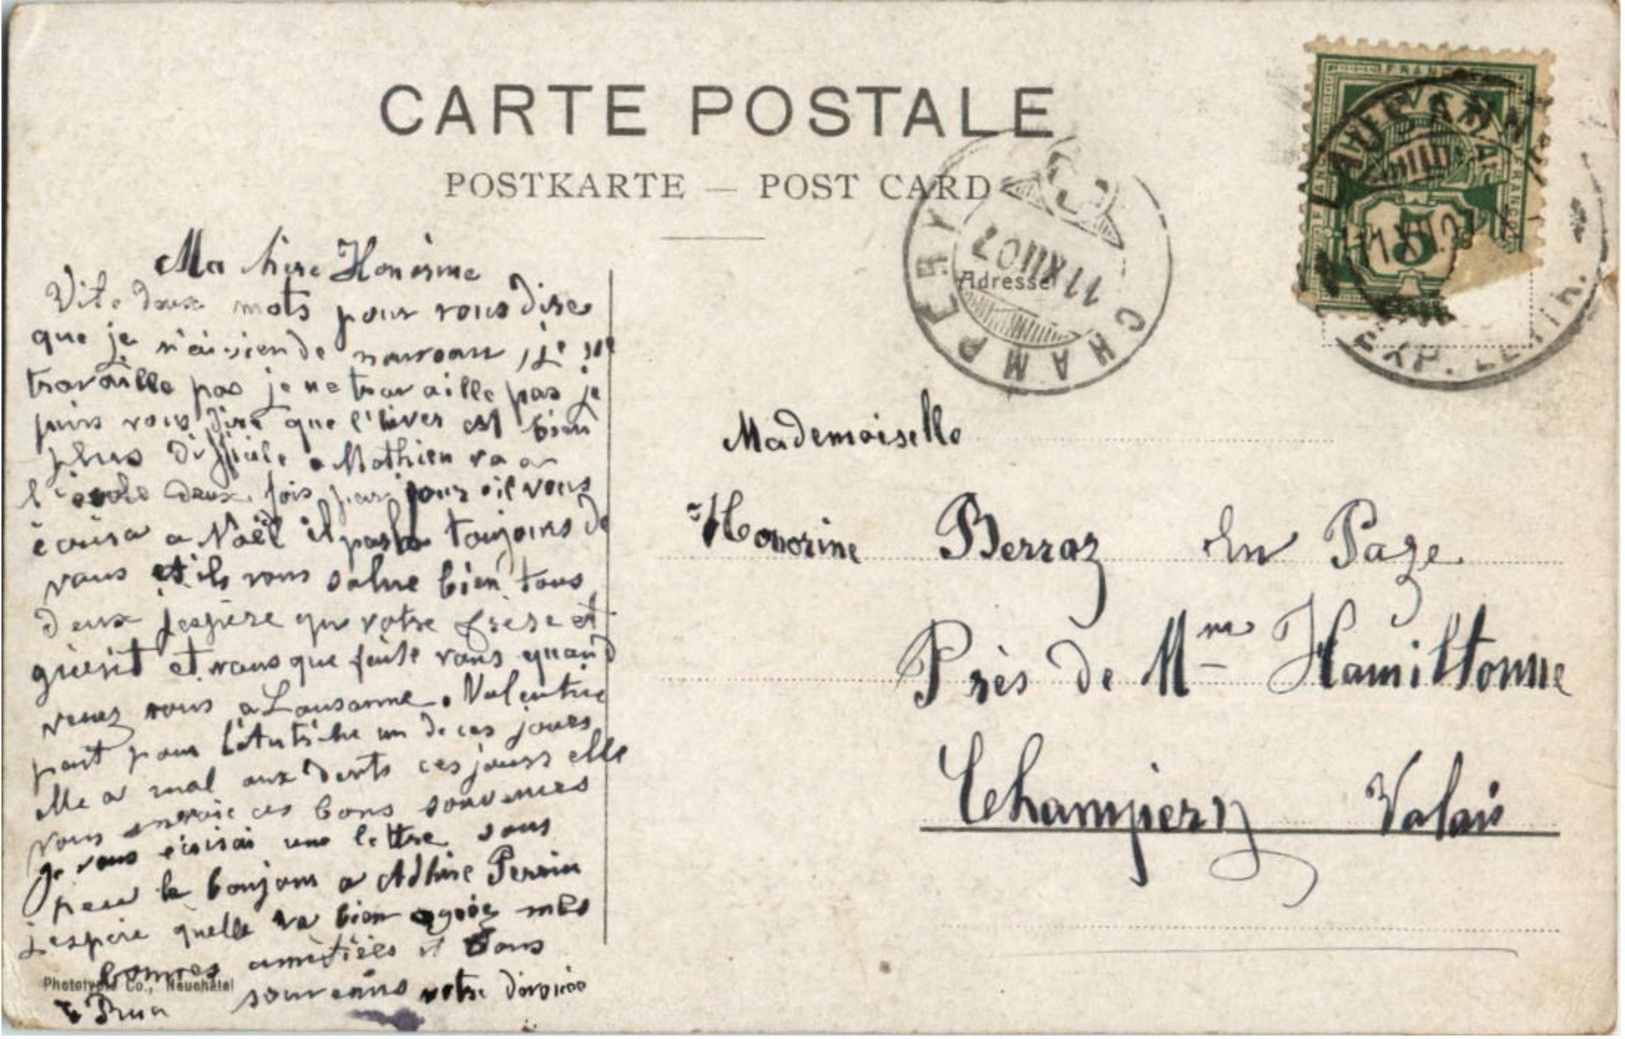 CARTE POSTALE
POSTKARTE — POST CARD
Adresse
CHAMPERY
11 XII 07
LAUSANNE
11 XII 07
EXP. LETTR.
FRANCO
5
Mademoiselle
Honorine Berraz En Page
Près de Mme Hamiltonne
Champery Valais
Ma chère Honorine
Vite deux mots pour vous dire
que je n'ai rien de nouveau, je ne
travaille pas je ne travaille pas je
puis vous dire que l'hiver est bien
plus difficile Mathieu va a
l'école deux fois par jour il vous
écrira a Noël il parle toujours de
vous et ils vous salue bien tous
deux j'espère que votre frère et
guérit et vous que faite vous quand
venez vous a Lausanne. Valentine
part pour un de ces joures
elle a mal aux dents ces jours elle
vous envoie ces bons souvenirs
je vous écrirai une lettre sous
peu le bonjour a Adline Perrin
j'espère quelle va bien mes
bonnes amitiées et bons
souvenirs votre
Phototypie Co., Neuchâtel